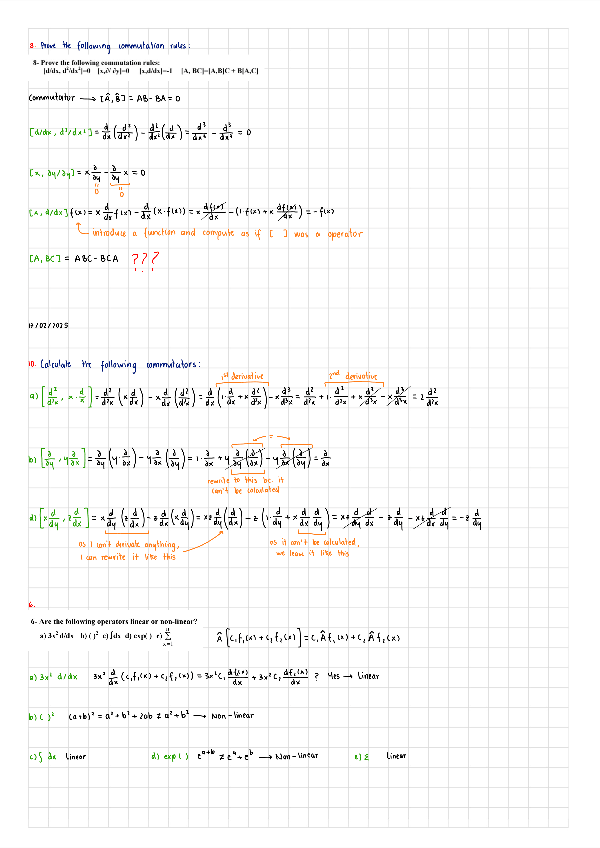 8. Prove the following commutation rules:
8- Prove the following commutation rules:
[d/dx, d²/dx²]=0 [x,∂/∂y]=0 [x,d/dx]=-1 [A, BC]=[A,B]C + B[A,C]
Commutator → [Â, B̂] = AB - BA = 0
[d/dx, d²/dx²] = d/dx (d²/dx²) - d²/dx² (d/dx) = d³/dx³ - d³/dx³ = 0
[x, ∂y/∂y] = x ∂/∂y - ∂/∂y x = 0
0 0
[x, d/dx] f(x) = x d/dx f(x) - d/dx (x · f(x)) = x df(x)/dx - (1 · f(x) + x df(x)/dx) = - f(x)
introduce a function and compute as if [ ] was a operator
[A, BC] = ABC - BCA ???
17/02/2025
10. Calculate the following commutators:
1st derivative 2nd derivative
a) [d²/d²x, x · d/dx] = d²/d²x (x d/dx) - x d/dx (d²/d²x) = d/dx (1 · d/dx + x d²/d²x) - x d³/d³x = d²/d²x + 1 · d²/d²x + x d³/d³x - x d³/d³x = 2 d²/d²x
=
b) [∂/∂y, y ∂/∂x] = ∂/∂y (y · ∂/∂x) - y ∂/∂x (∂/∂y) = 1 · ∂/∂x + y ∂/∂y (∂/∂x) - y ∂/∂x (∂/∂y) = ∂/∂x
rewrite to this bc. it
can't be calculated
d) [x d/dy, z d/dx] = x d/dy (z d/dx) - z d/dx (x d/dy) = xz d/dy (d/dx) - z (1 · d/dy + x d/dx d/dy) = xz d/dy d/dx - z d/dy - xz d/dx d/dy = - z d/dy
as I can't derivate anything,
I can rewrite it like this
as it can't be calculated,
we leave it like this
6.
6- Are the following operators linear or non-linear?
a) 3x² d/dx b) ( )² c) ∫dx d) exp( ) e) Σ x=1
Â [c₁f₁(x) + c₂f₂(x)] = c₁Âf₁(x) + c₂Âf₂(x)
a) 3x² d/dx 3x² d/dx (c₁f₁(x) + c₂f₂(x)) = 3x²c₁ df₁(x)/dx + 3x²c₂ df₂(x)/dx ? Yes → Linear
b) ( )² (a+b)² = a² + b² + 2ab ≠ a² + b² → Non-linear
c) ∫ dx Linear d) exp( ) e^(a+b) ≠ e^a + e^b → Non-linear e) Σ Linear